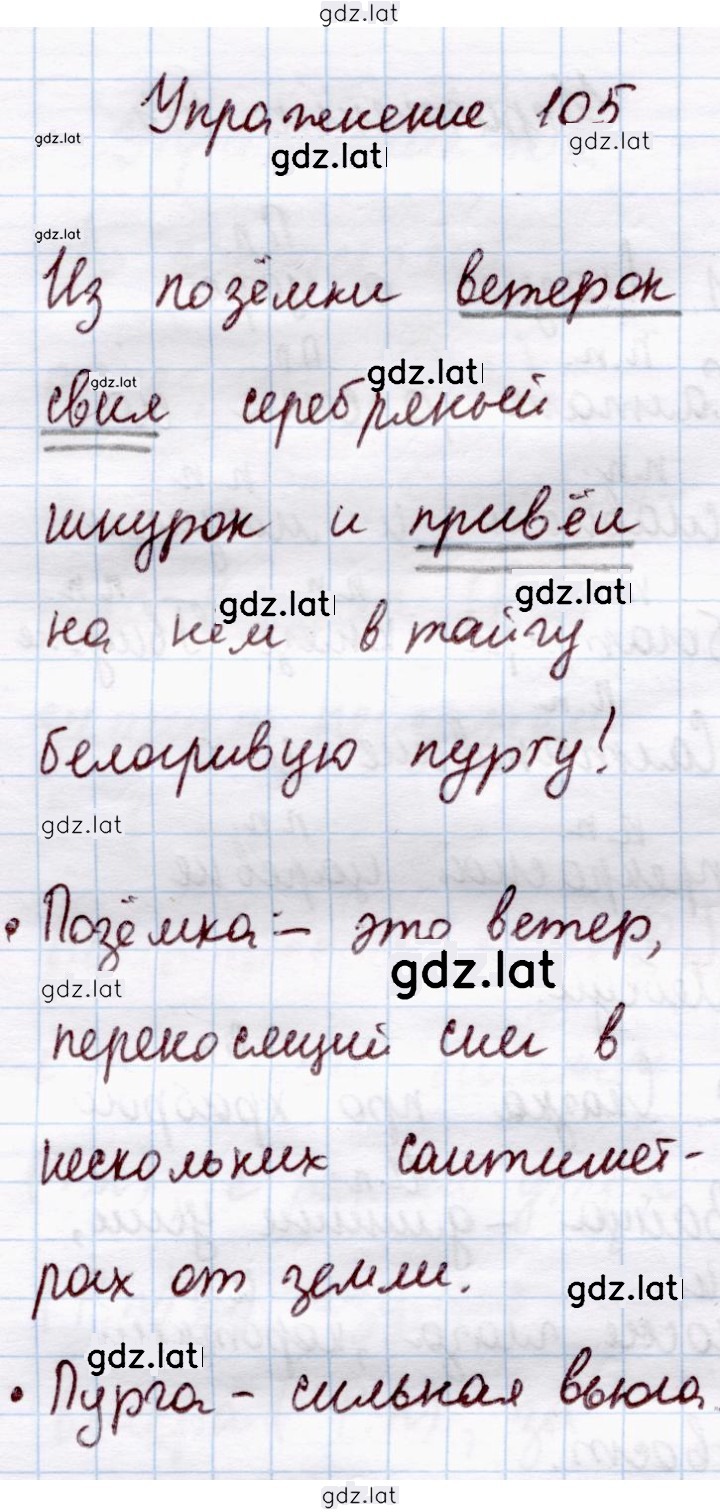 gdz.lat
Упражнение 105
gdz.lat
gdz.lat
gdz.lat
gdz.lat
Из позёмки ветерок
gdz.lat
gdz.lat
свил серебряный
шнурок и привёл
gdz.lat
gdz.lat
на нём в тайгу
белогривую пургу!
gdz.lat
• Позёмка – это ветер,
gdz.lat
gdz.lat
переносящий снег в
нескольких сантимет-
рах от земли.
gdz.lat
gdz.lat
• Пурга – сильная вьюга.
gdz.lat